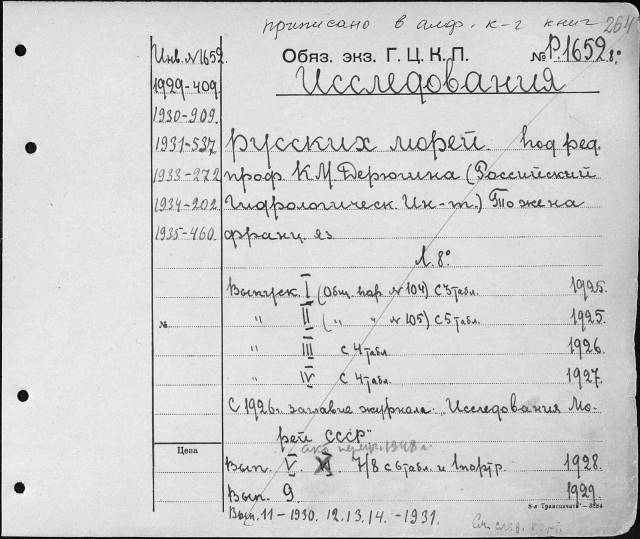 приписано в алф. к-г книг 264
Инв. №1652.
1929-409.
1930-909.
1931-537.
1933-272
1934-202
1935-460.
№
Цена
Обяз. экз. Г. Ц. К. П. № Р.1652.8°
Исследования
русских морей. под ред.
проф. К. М. Дерюгина (Российский
Гидрологическ. Ин-т.) То же на
франц. яз.
Л. 8°
Выпуск. I (Общ. пар № 104) с 3 табл. 1925.
" II ( " " № 105) с 5 табл. 1925.
" III с 4 табл. 1926.
" IV с 4 табл. 1927.
С 1926 г. заглавие журнала "Исследования Мо-
рей СССР"
1948 г.
Вып. V. VI 7/8 с 6 табл. и 1 портр. 1928.
Вып. 9. 1929.
8-я Транспечать — 3584
Вып. 11 – 1930. 12. 13. 14. – 1931.
См. след. к.